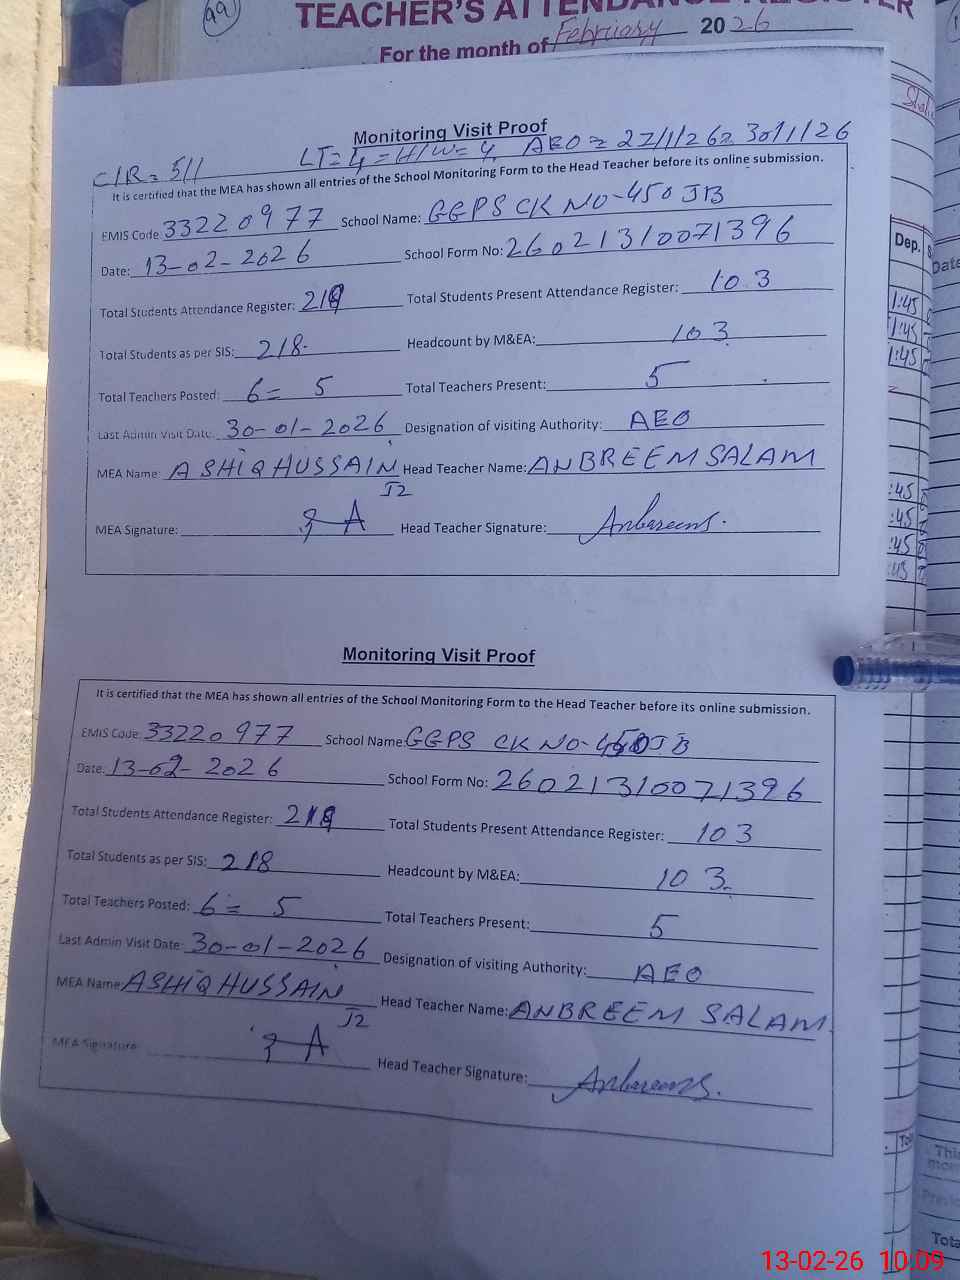 99
TEACHER'S ATTENDANCE REGISTER
For the month of February 2026
Monitoring Visit Proof
C/R = 5/1 LT = 4 = H/W = 4. AEO = 27/1/26 = 30/1/26
It is certified that the MEA has shown all entries of the School Monitoring Form to the Head Teacher before its online submission.
EMIS Code 33220977 School Name: GGPS CK NO-450 JB
Date: 13-02-2026 School Form No: 26021310071396
Total Students Attendance Register: 218 Total Students Present Attendance Register: 103
Total Students as per SIS: 218 Headcount by M&EA: 103
Total Teachers Posted: 6 = 5 Total Teachers Present: 5
Last Admin Visit Date: 30-01-2026 Designation of visiting Authority: AEO
MEA Name: ASHIQ HUSSAIN Head Teacher Name: ANBREEM SALAM
J2
MEA Signature: Head Teacher Signature: Anbareens.
Monitoring Visit Proof
It is certified that the MEA has shown all entries of the School Monitoring Form to the Head Teacher before its online submission.
EMIS Code: 33220977 School Name: GGPS CK NO-450 JB
Date: 13-02-2026 School Form No: 26021310071396
Total Students Attendance Register: 218 Total Students Present Attendance Register: 103
Total Students as per SIS: 218 Headcount by M&EA: 103
Total Teachers Posted: 6 = 5 Total Teachers Present: 5
Last Admin Visit Date: 30-01-2026 Designation of visiting Authority: AEO
MEA Name: ASHIQ HUSSAIN Head Teacher Name: ANBREEM SALAM
J2
MEA Signature: Head Teacher Signature: Anbareens.
Dep.
Date
1:45
1:45
1:45
:45
:45
:45
:45
13-02-26 10:09